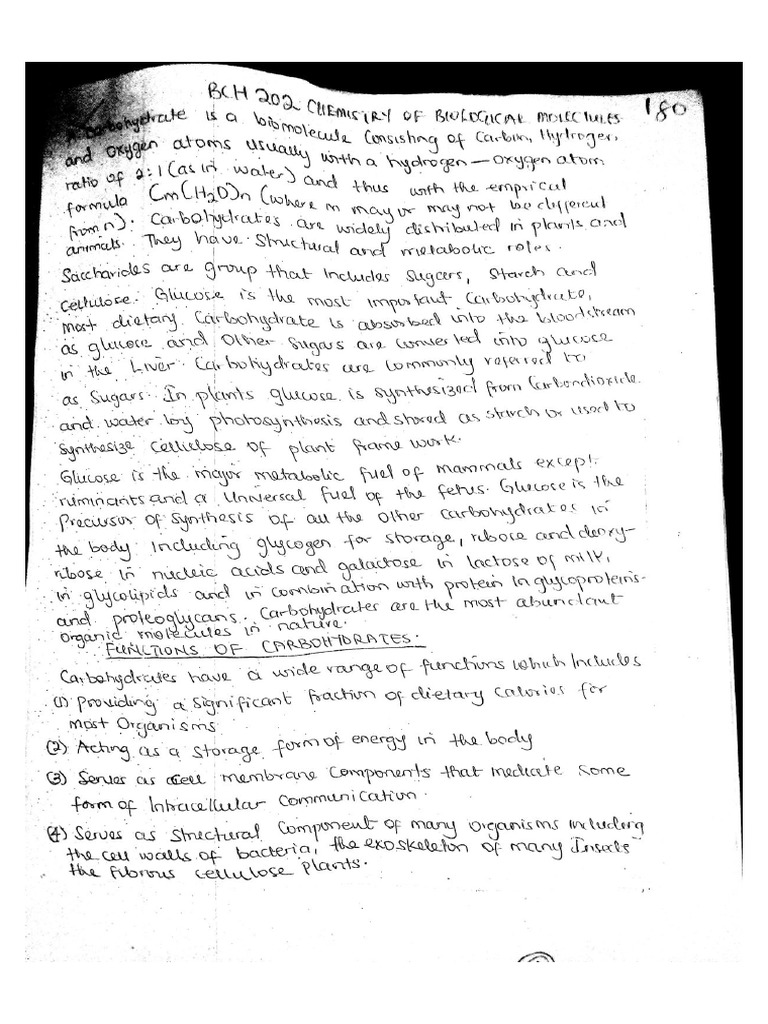 BCH 202 CHEMISTRY OF BIOLOGICAL MOLECULES 180
A carbohydrate is a biomolecule consisting of Carbon, Hydrogen,
and oxygen atoms usually with a hydrogen - oxygen atom
ratio of 2:1 (as in water) and thus with the emprical
formula Cm(H2O)n (where m may or may not be different
from n). Carbohydrates are widely distributed in plants and
animals. They have structural and metabolic roles.
Saccharides are group that includes sugars, starch and
cellulose. Glucose is the most important carbohydrate,
most dietary carbohydrate is absorbed into the bloodstream
as glucose and other sugars are converted into glucose
in the Liver. Carbohydrates are commonly referred to
as sugars. In plants glucose is synthesized from Carbondioxide
and water by photosynthesis and stored as starch or used to
synthesize cellulose of plant frame work.
Glucose is the major metabolic fuel of mammals except
ruminants and a universal fuel of the fetus. Glucose is the
precursor of synthesis of all the other carbohydrates in
the body including glycogen for storage, ribose and deoxy-
ribose in nucleic acids and galactose in lactose of milk,
in glycolipids and in combination with protein in glycoproteins
and proteoglycans. Carbohydrates are the most abundant
organic molecules in nature.
FUNCTIONS OF CARBOHYDRATES.
Carbohydrates have a wide range of functions which includes
(1) Providing a significant fraction of dietary calories for
most organisms
(2) Acting as a storage form of energy in the body
(3) Serves as cell membrane components that mediate some
form of Intracellular communication.
(4) Serves as structural component of many organisms including
the cell walls of bacteria, the exoskeleton of many Insects
the fibrous cellulose plants.